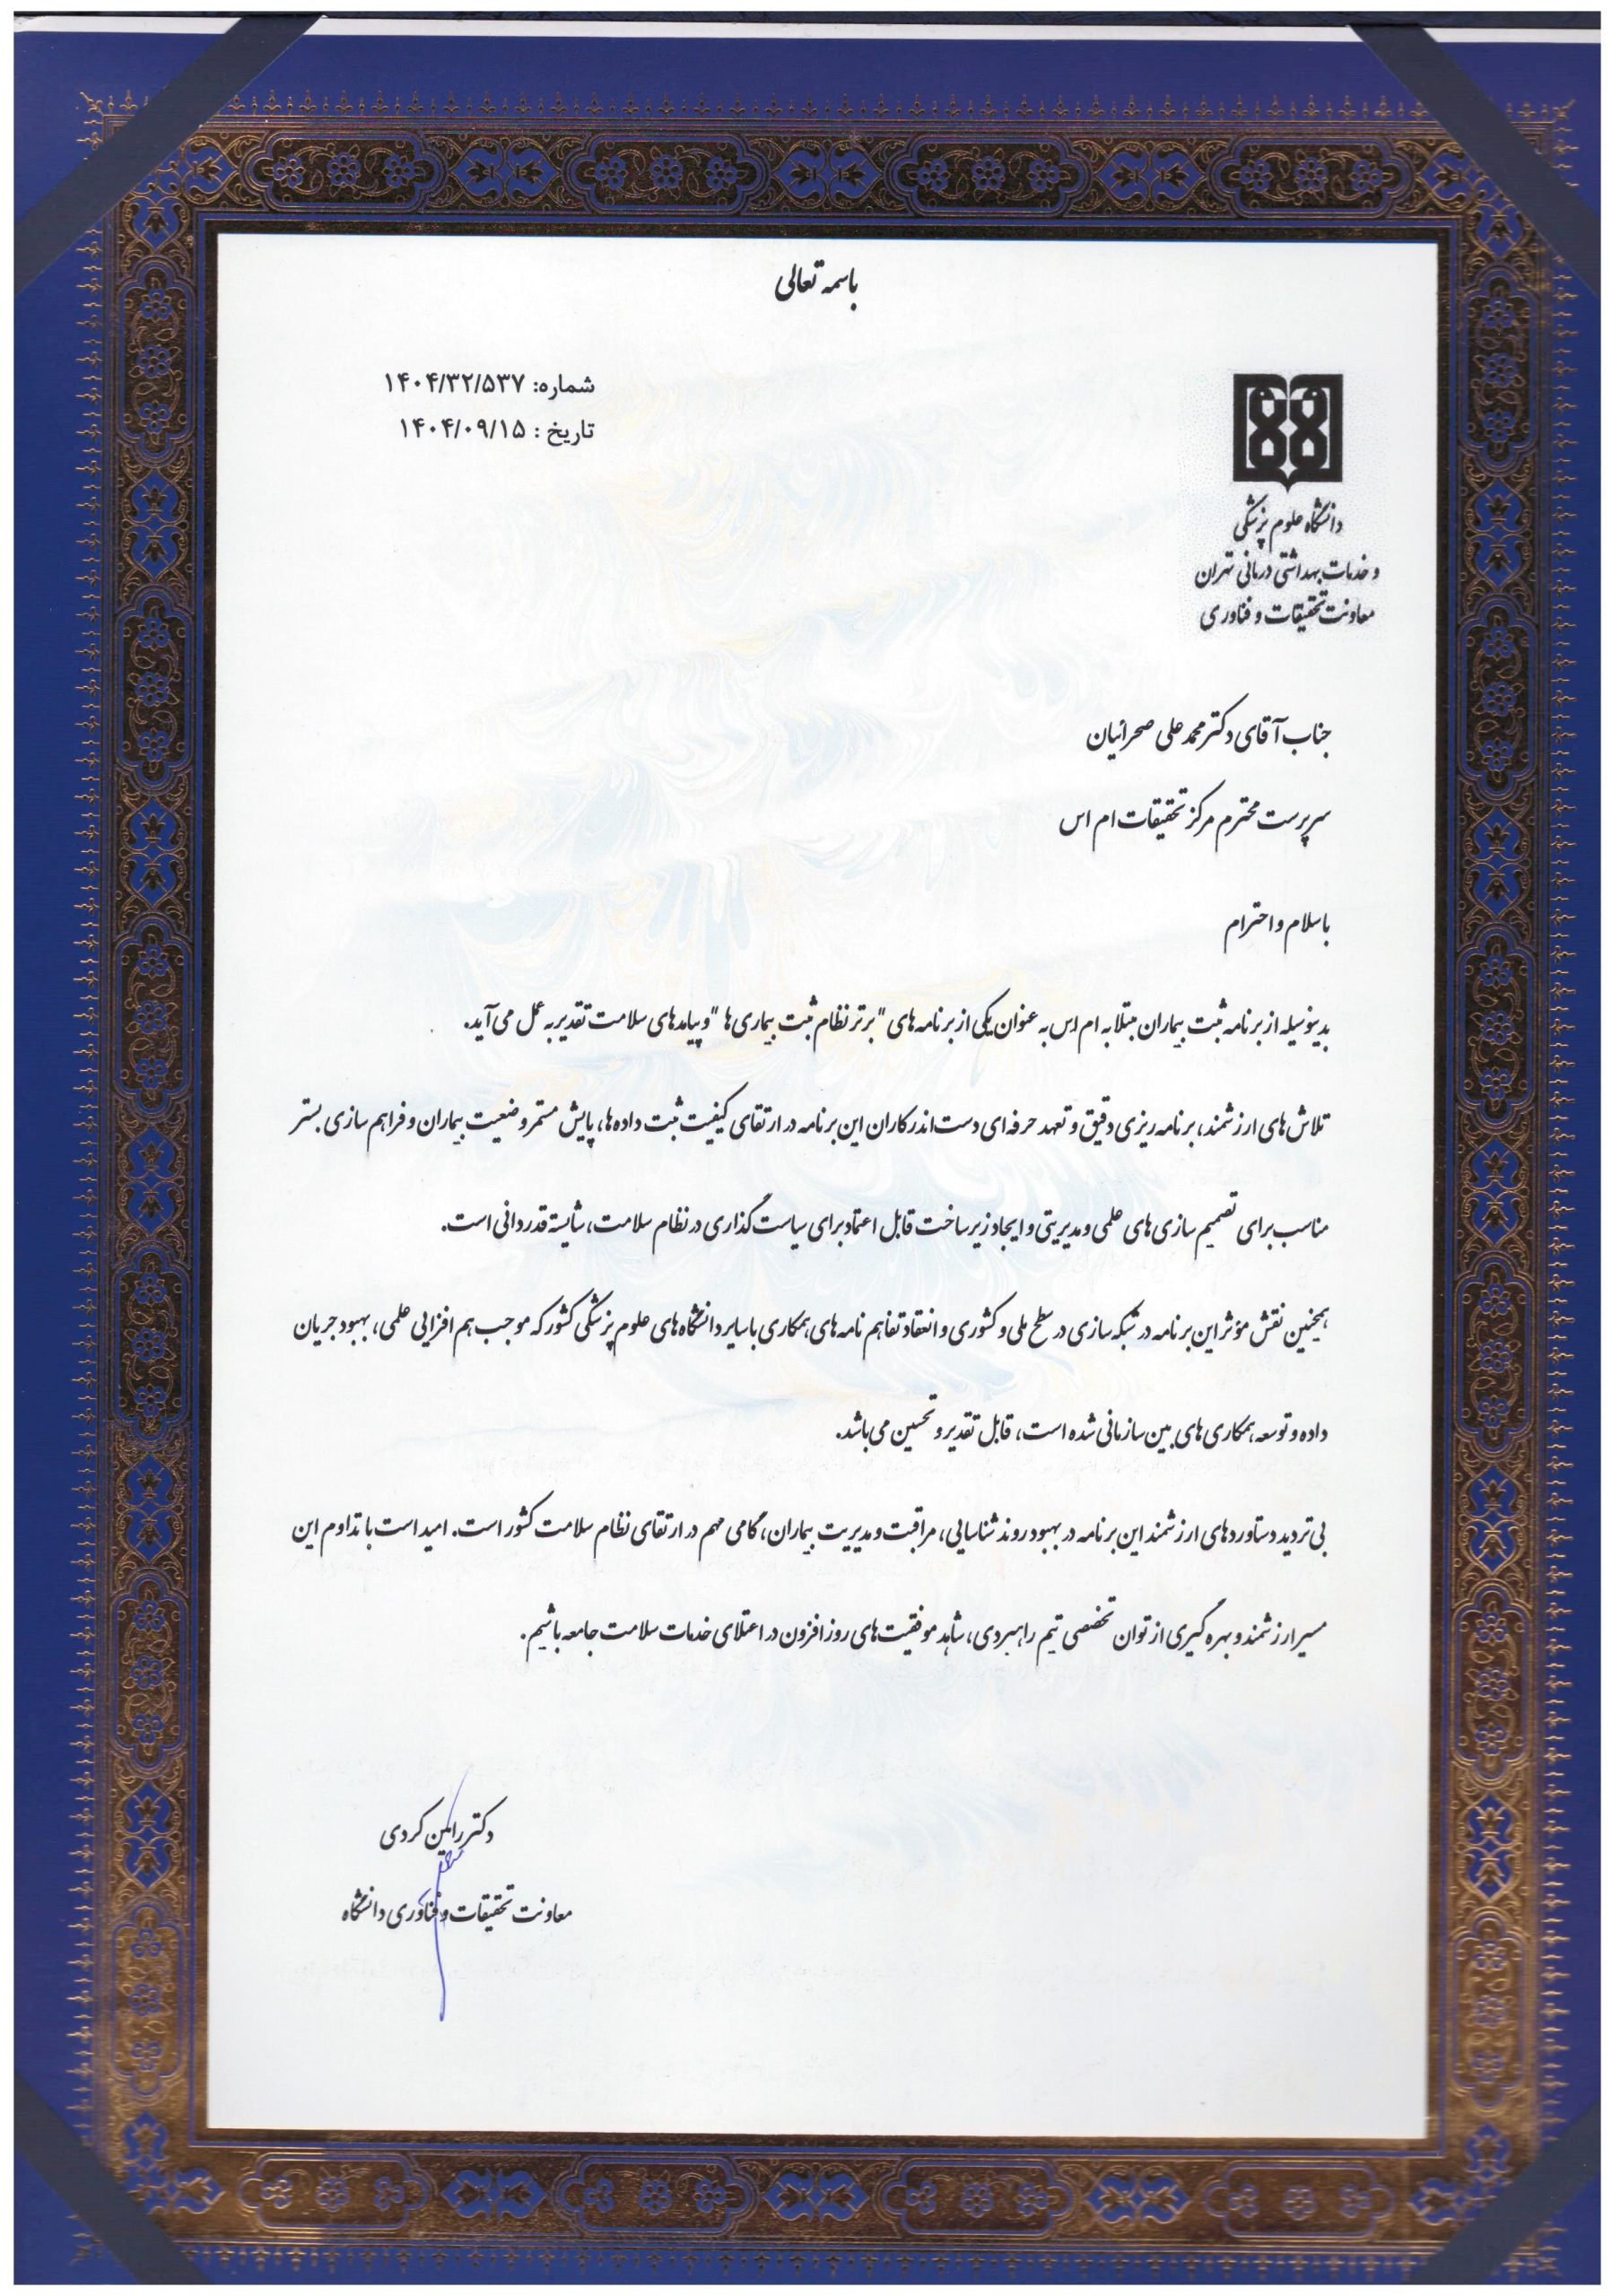 باسمه تعالی
شماره: ۱۴۰۴/۳۲/۵۳۷
تاریخ : ۱۴۰۴/۰۹/۱۵
دانشگاه علوم پزشکی
و خدمات بهداشتی درمانی تهران
معاونت تحقیقات و فناوری
جناب آقای دکتر محمد علی صحرائیان
سرپرست محترم مرکز تحقیقات ام اس
با سلام و احترام
بدینوسیله از برنامه ثبت بیماران مبتلا به ام اس به عنوان یکی از برنامه های "برتر نظام ثبت بیماری ها" و پیامدهای سلامت تقدیر به عمل می آید.
تلاش های ارزشمند، برنامه ریزی دقیق و تعهد حرفه ای دست اندرکاران این برنامه در ارتقای کیفیت ثبت داده ها، پایش مستمر وضعیت بیماران و فراهم سازی بستر
مناسب برای تصمیم سازی های علمی و مدیریتی و ایجاد زیرساخت قابل اعتماد برای سیاست گذاری در نظام سلامت، شایسته قدردانی است.
همچنین نقش مؤثر این برنامه در شبکه سازی در سطح ملی و کشوری و انعقاد تفاهم نامه های همکاری با سایر دانشگاه های علوم پزشکی کشور که موجب هم افزایی علمی، بهبود جریان
داده و توسعه همکاری های بین سازمانی شده است، قابل تقدیر و تحسین می باشد.
بی تردید دستاوردهای ارزشمند این برنامه در بهبود روند شناسایی، مراقبت و مدیریت بیماران، گامی مهم در ارتقای نظام سلامت کشور است. امید است با تداوم این
مسیر ارزشمند و بهره گیری از توان تخصصی تیم راهبردی، شاهد موفقیت های روز افزون در اعتلای خدمات سلامت جامعه باشیم.
دکتر رامین کردی
معاونت تحقیقات و فناوری دانشگاه